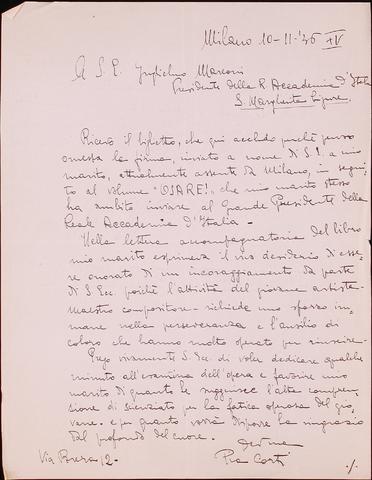 Milano 10-11-'36 XV
A S. E. Guglielmo Marconi
Presidente della R. Accademia d'Italia
S. Margherita Ligure
Ricevo il biglietto, che qui accludo perché venne
omessa la firma, inviato a nome di S. E. a mio
marito, attualmente assente da Milano, in segui-
to al volume "OSARE!", che mio marito stesso
ha ambito inviare al Grande Presidente della
Reale Accademia d'Italia -
Nella lettera accompagnatoria del libro
mio marito esprimeva il vivo desiderio d'esse-
re onorato di un incoraggiamento da parte
di S. Ecc. poiché l'attività del giovane artista-
maestro compositore - richiede uno sforzo im-
mane nella perseveranza e l'ausilio di
coloro che hanno molto operato per riuscire -
Prego vivamente S. Ecc. di voler dedicare qualche
minuto all'esamina dell'opera e favorire mio
marito di quanto le suggerisce l'alta compren-
sione di scienziato per la fatica operosa del gio-
vane - e per quanto vorrà disporre la ringrazio
dal profondo del cuore. -
Dev.ma
Pia Corti
Via Brera 12 -
./.